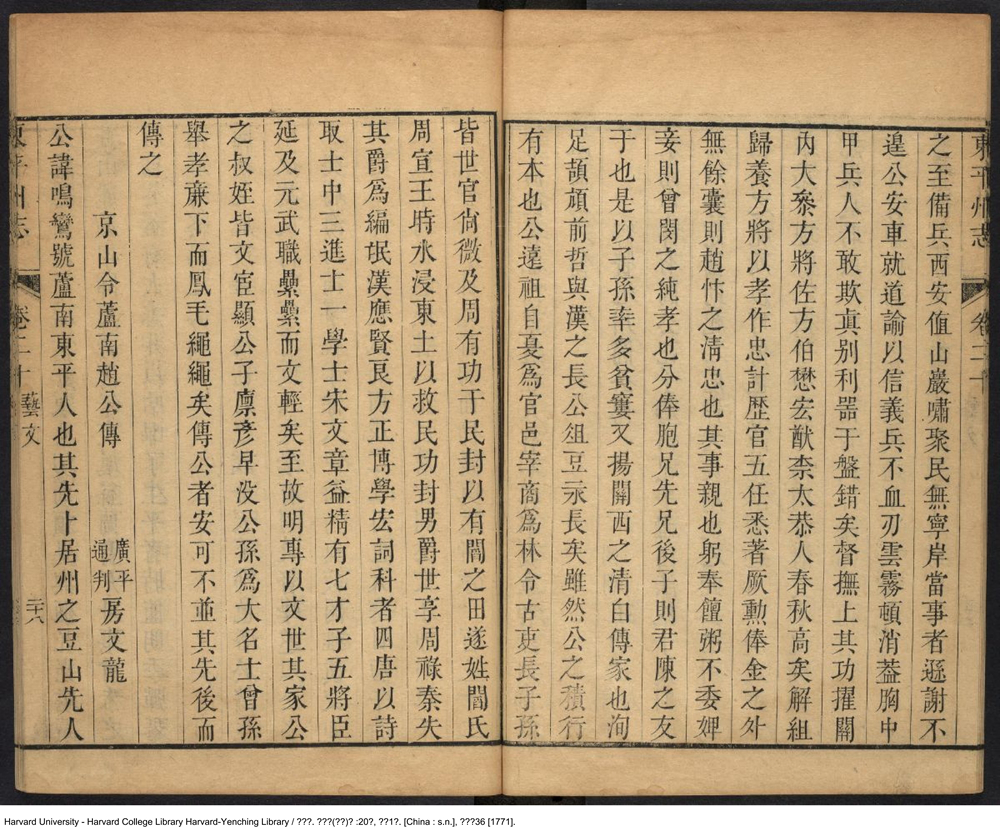 東平州志 卷二十
之至備兵西安值山嚴嘯聚民無寧岸當事者遜謝不
遑公安車就道諭以信義兵不血刃雲霧頓消葢胸中
甲兵人不敢欺眞别利噐于盤錯矣督撫上其功擢關
內大叅方將佐方伯懋宏猷柰太恭人春秋高矣解組
歸養方將以孝作忠計歷官五任悉著厥勳俸金之外
無餘囊則趙忭之淸忠也其事親也躬奉饘粥不委婢
妾則曾閔之純孝也分俸胞兄先兄後子則君陳之友
于也是以子孫䇥多貧窶又揚關西之清白傳家也洵
足頡頏前哲與漢之長公俎豆永長矣雖然公之積行
有本也公遠祖自憂爲官邑宰商爲林令古吏長子孫
皆世官尙微及周有功于民封以有閻之田遂姓閻氏
周宣王時水浸東土以救民功封男爵世享周祿秦失
其爵爲編氓漢應賢良方正博學宏詞科者四唐以詩
取士中三進士一學士宋文章益精有七才子五將臣
延及元武職纍纍而文輕矣至故明專以文世其家公
之叔姪皆文宦顯公子廪彥早没公孫爲大名士曾孫
舉孝廉下而鳳毛繩繩矣傳公者安可不並其先後而
傳之
京山令蘆南趙公傳 廣平通判房文龍
公諱鳴鸞號蘆南東平人也其先卜居州之豆山先人
東平州志 卷二十 藝文 三六
Harvard University - Harvard College Library Harvard-Yenching Library / ???. ???(??)? :20?, ??1?. [China : s.n.], ???36 [1771].